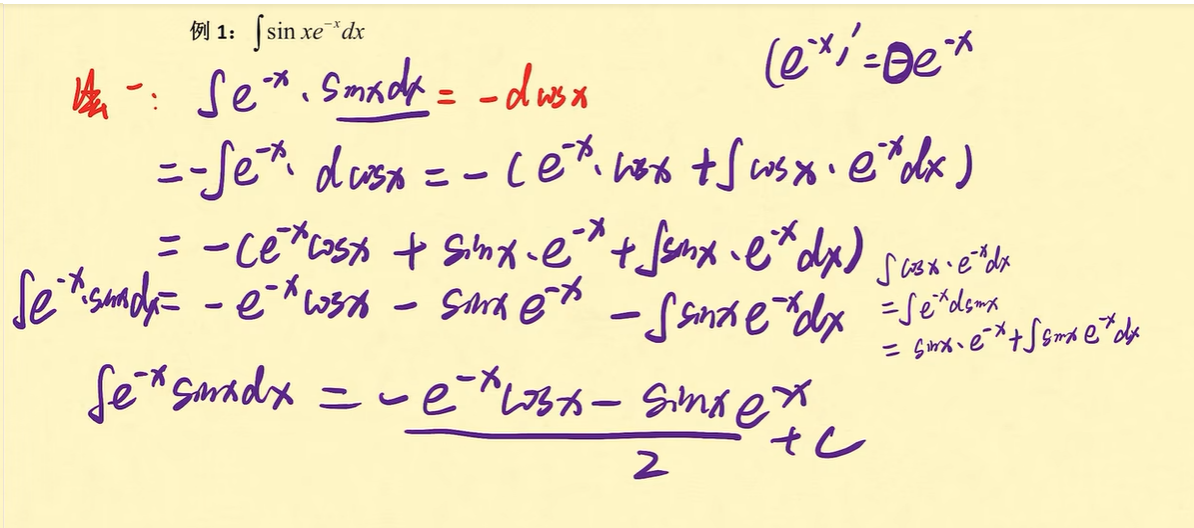 例 1: ∫sin xe⁻ˣdx
(e⁻ˣ)' = ⊖e⁻ˣ
法一: ∫e⁻ˣ·sinxdx = -dcosx
= -∫e⁻ˣ·dcosx = -(e⁻ˣ·cosx + ∫cosx·e⁻ˣdx)
= -(e⁻ˣcosx + sinx·e⁻ˣ + ∫sinx·e⁻ˣdx)
∫e⁻ˣ·sinxdx = -e⁻ˣcosx - sinxe⁻ˣ - ∫sinxe⁻ˣdx
∫cosx·e⁻ˣdx
= ∫e⁻ˣdsinx
= sinx·e⁻ˣ + ∫sinxe⁻ˣdx
∫e⁻ˣsinxdx = -e⁻ˣcosx - sinxe⁻ˣ
+ C
2